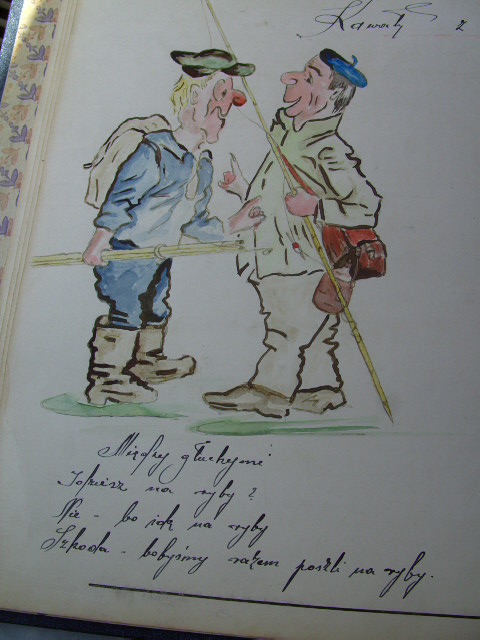 Kawały z
Między głuchymi
Idziesz na ryby?
Nie - bo idę na ryby
Szkoda - bobyśmy razem poszli na ryby.